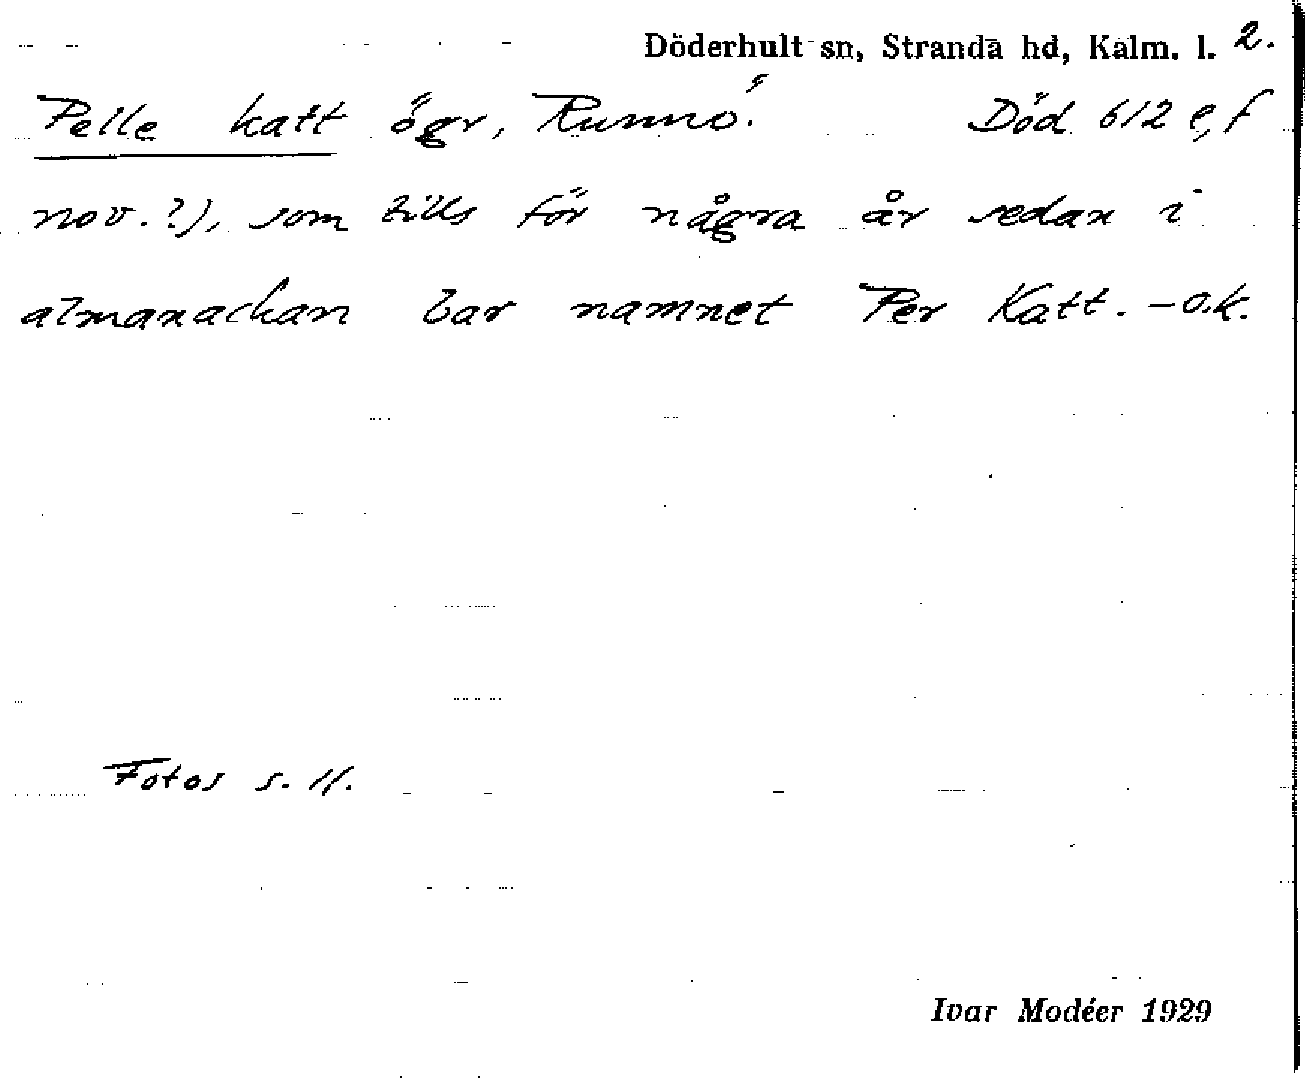 Döderhult sn, Stranda hd, Kalm. l. 2.
Pelle katt ögr, Runnö. Död 6/2 e, f
nov. ?), som tills för några år sedan i
almanackan bar namnet Per Katt. – o.k.
Fotos s. 11.
Ivar Modéer 1929